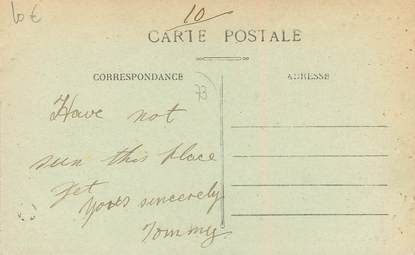 10€
10
CARTE POSTALE
CORRESPONDANCE
ADRESSE
73
Have not
seen this place
yet
yours sincerely
Tommy